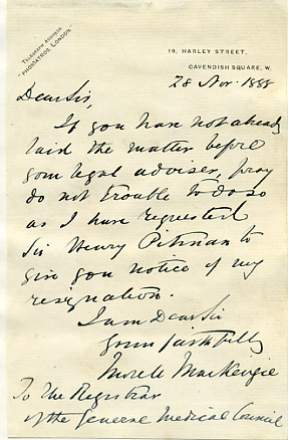 Telegraphic Address
"PHONIATROS, LONDON."
19, HARLEY STREET,
CAVENDISH SQUARE, W.
28 Nov. 1888
Dear Sir,
If you have not already
laid the matter before
your legal adviser, pray
do not trouble to do so
as I have requested
Sir Henry Pitman to
give you notice of my
resignation.
I am Dear Sir
yours faithfully
Morell Mackenzie
To the Registrar
of the General Medical Council